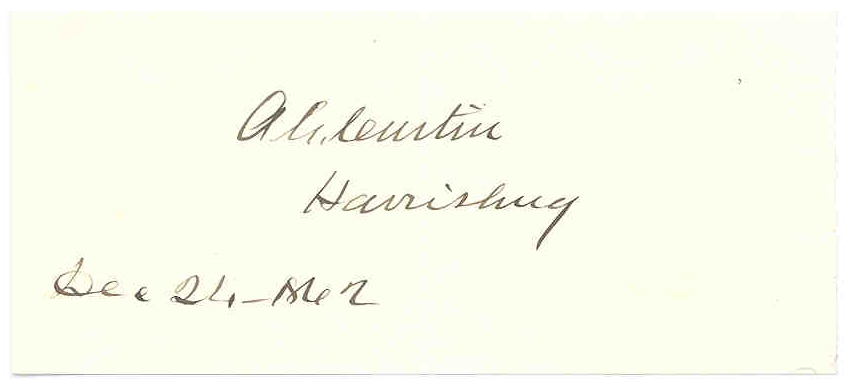 A G Curtin
Harrisburg
Dec 24 - 1862